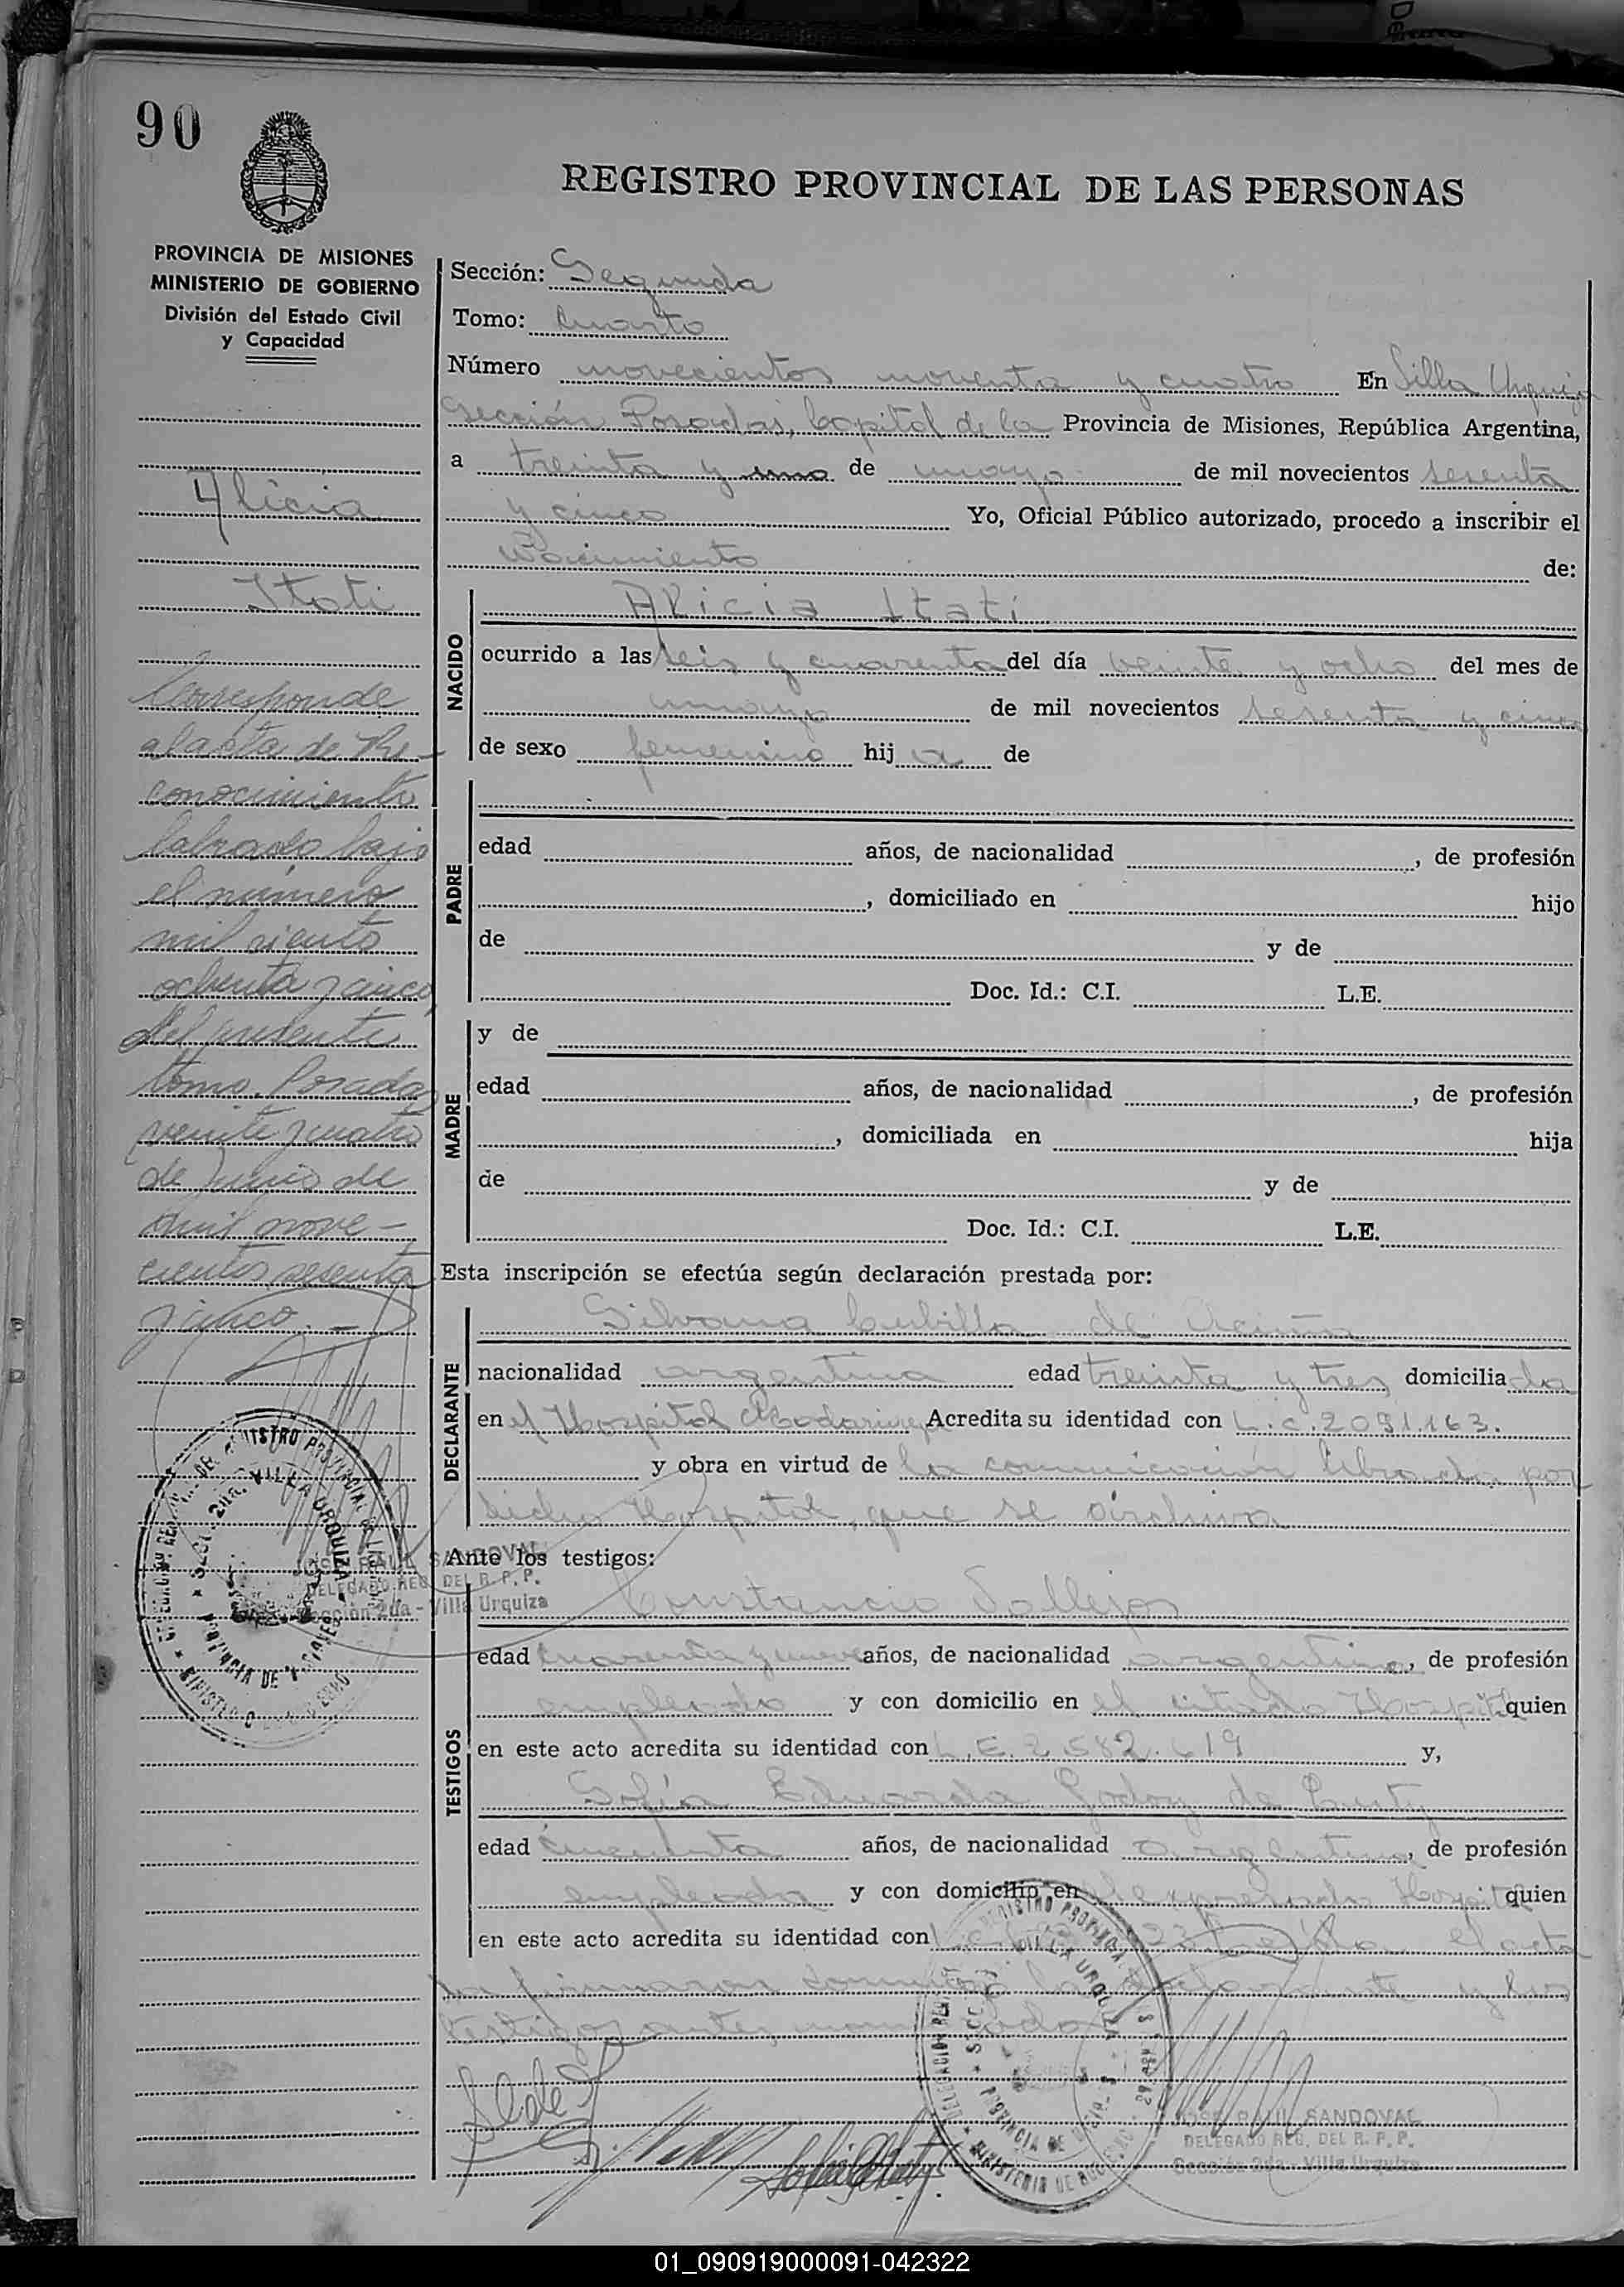 90
REGISTRO PROVINCIAL DE LAS PERSONAS
PROVINCIA DE MISIONES
MINISTERIO DE GOBIERNO
División del Estado Civil
y Capacidad
Alicia
Itati
Corresponde
al acta de Re-
conocimiento
labrado bajo
el número
mil ciento
ochenta y cinco
del presente
tomo. Posadas
veinte y cuatro
de Junio de
mil nove-
cientos sesenta
y cinco. -
Sección: Segunda
Tomo: Cuarto
Número novecientos noventa y cuatro En Villa Urquiza
Sección Posadas, Capital de la Provincia de Misiones, República Argentina,
a treinta y uno de mayo de mil novecientos sesenta
y cinco Yo, Oficial Público autorizado, procedo a inscribir el
Nacimiento de:
NACIDO
Alicia Itatí
ocurrido a las seis y cuarenta del día veinte y ocho del mes de
mayo de mil novecientos sesenta y cinco
de sexo femenino hija de
PADRE
edad años, de nacionalidad , de profesión
, domiciliado en hijo
de y de
Doc. Id.: C.I. L.E.
MADRE
y de
edad años, de nacionalidad , de profesión
, domiciliada en hija
de y de
Doc. Id.: C.I. L.E.
Esta inscripción se efectúa según declaración prestada por:
DECLARANTE
Silvana Cubilla de Acuña
nacionalidad argentina edad treinta y tres domiciliada
en el Hospital Madariaga Acredita su identidad con L.C.2091.163.
y obra en virtud de la comunicación librada por
dicho Hospital, que se archiva
Ante los testigos:
TESTIGOS
Constancio Vallejos
edad cuarenta y nueve años, de nacionalidad argentina, de profesión
empleado y con domicilio en el citado Hospital quien
en este acto acredita su identidad con L.E.2.582.619 y,
Sofía Eduarda Godoy de
edad cincuenta años, de nacionalidad argentina, de profesión
empleada y con domicilio en el expresado Hospital quien
en este acto acredita su identidad con el acta
la firmaron conmigo la declarante y los
testigos antes
JOSE RAUL SANDOVAL
DELEGADO REG. DEL R. P. P.
Sección 2da - Villa Urquiza
JOSE RAUL SANDOVAL
DELEGADO REG. DEL R. P. P.
Sección 2da - Villa Urquiza
01_090919000091-042322